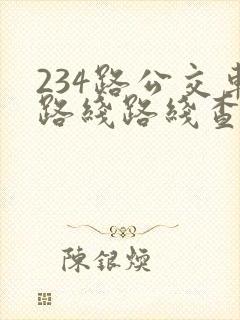 234路公交車
路綫路綫查
陳銀煐